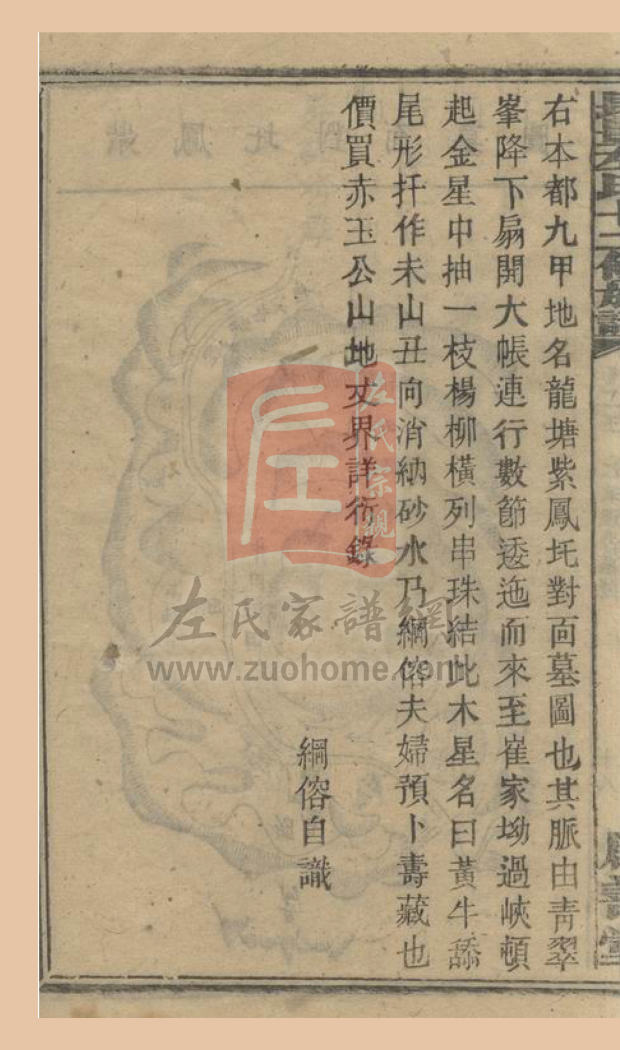 右本都九甲地名龍塘紫鳳坉對面墓圖也其脈由靑翠
峯降下扇開大帳連行數節逶迤而來至崔家坳過峽頓
起金星中抽一枝楊柳橫列串珠結此木星名曰黃牛舔
尾形扦作未山丑向消納砂水乃綱傛夫婦預卜壽藏也
價買赤玉公山地丈界詳衍錄
綱傛自識
左氏宗親
左氏家譜網
www.zuohome.com